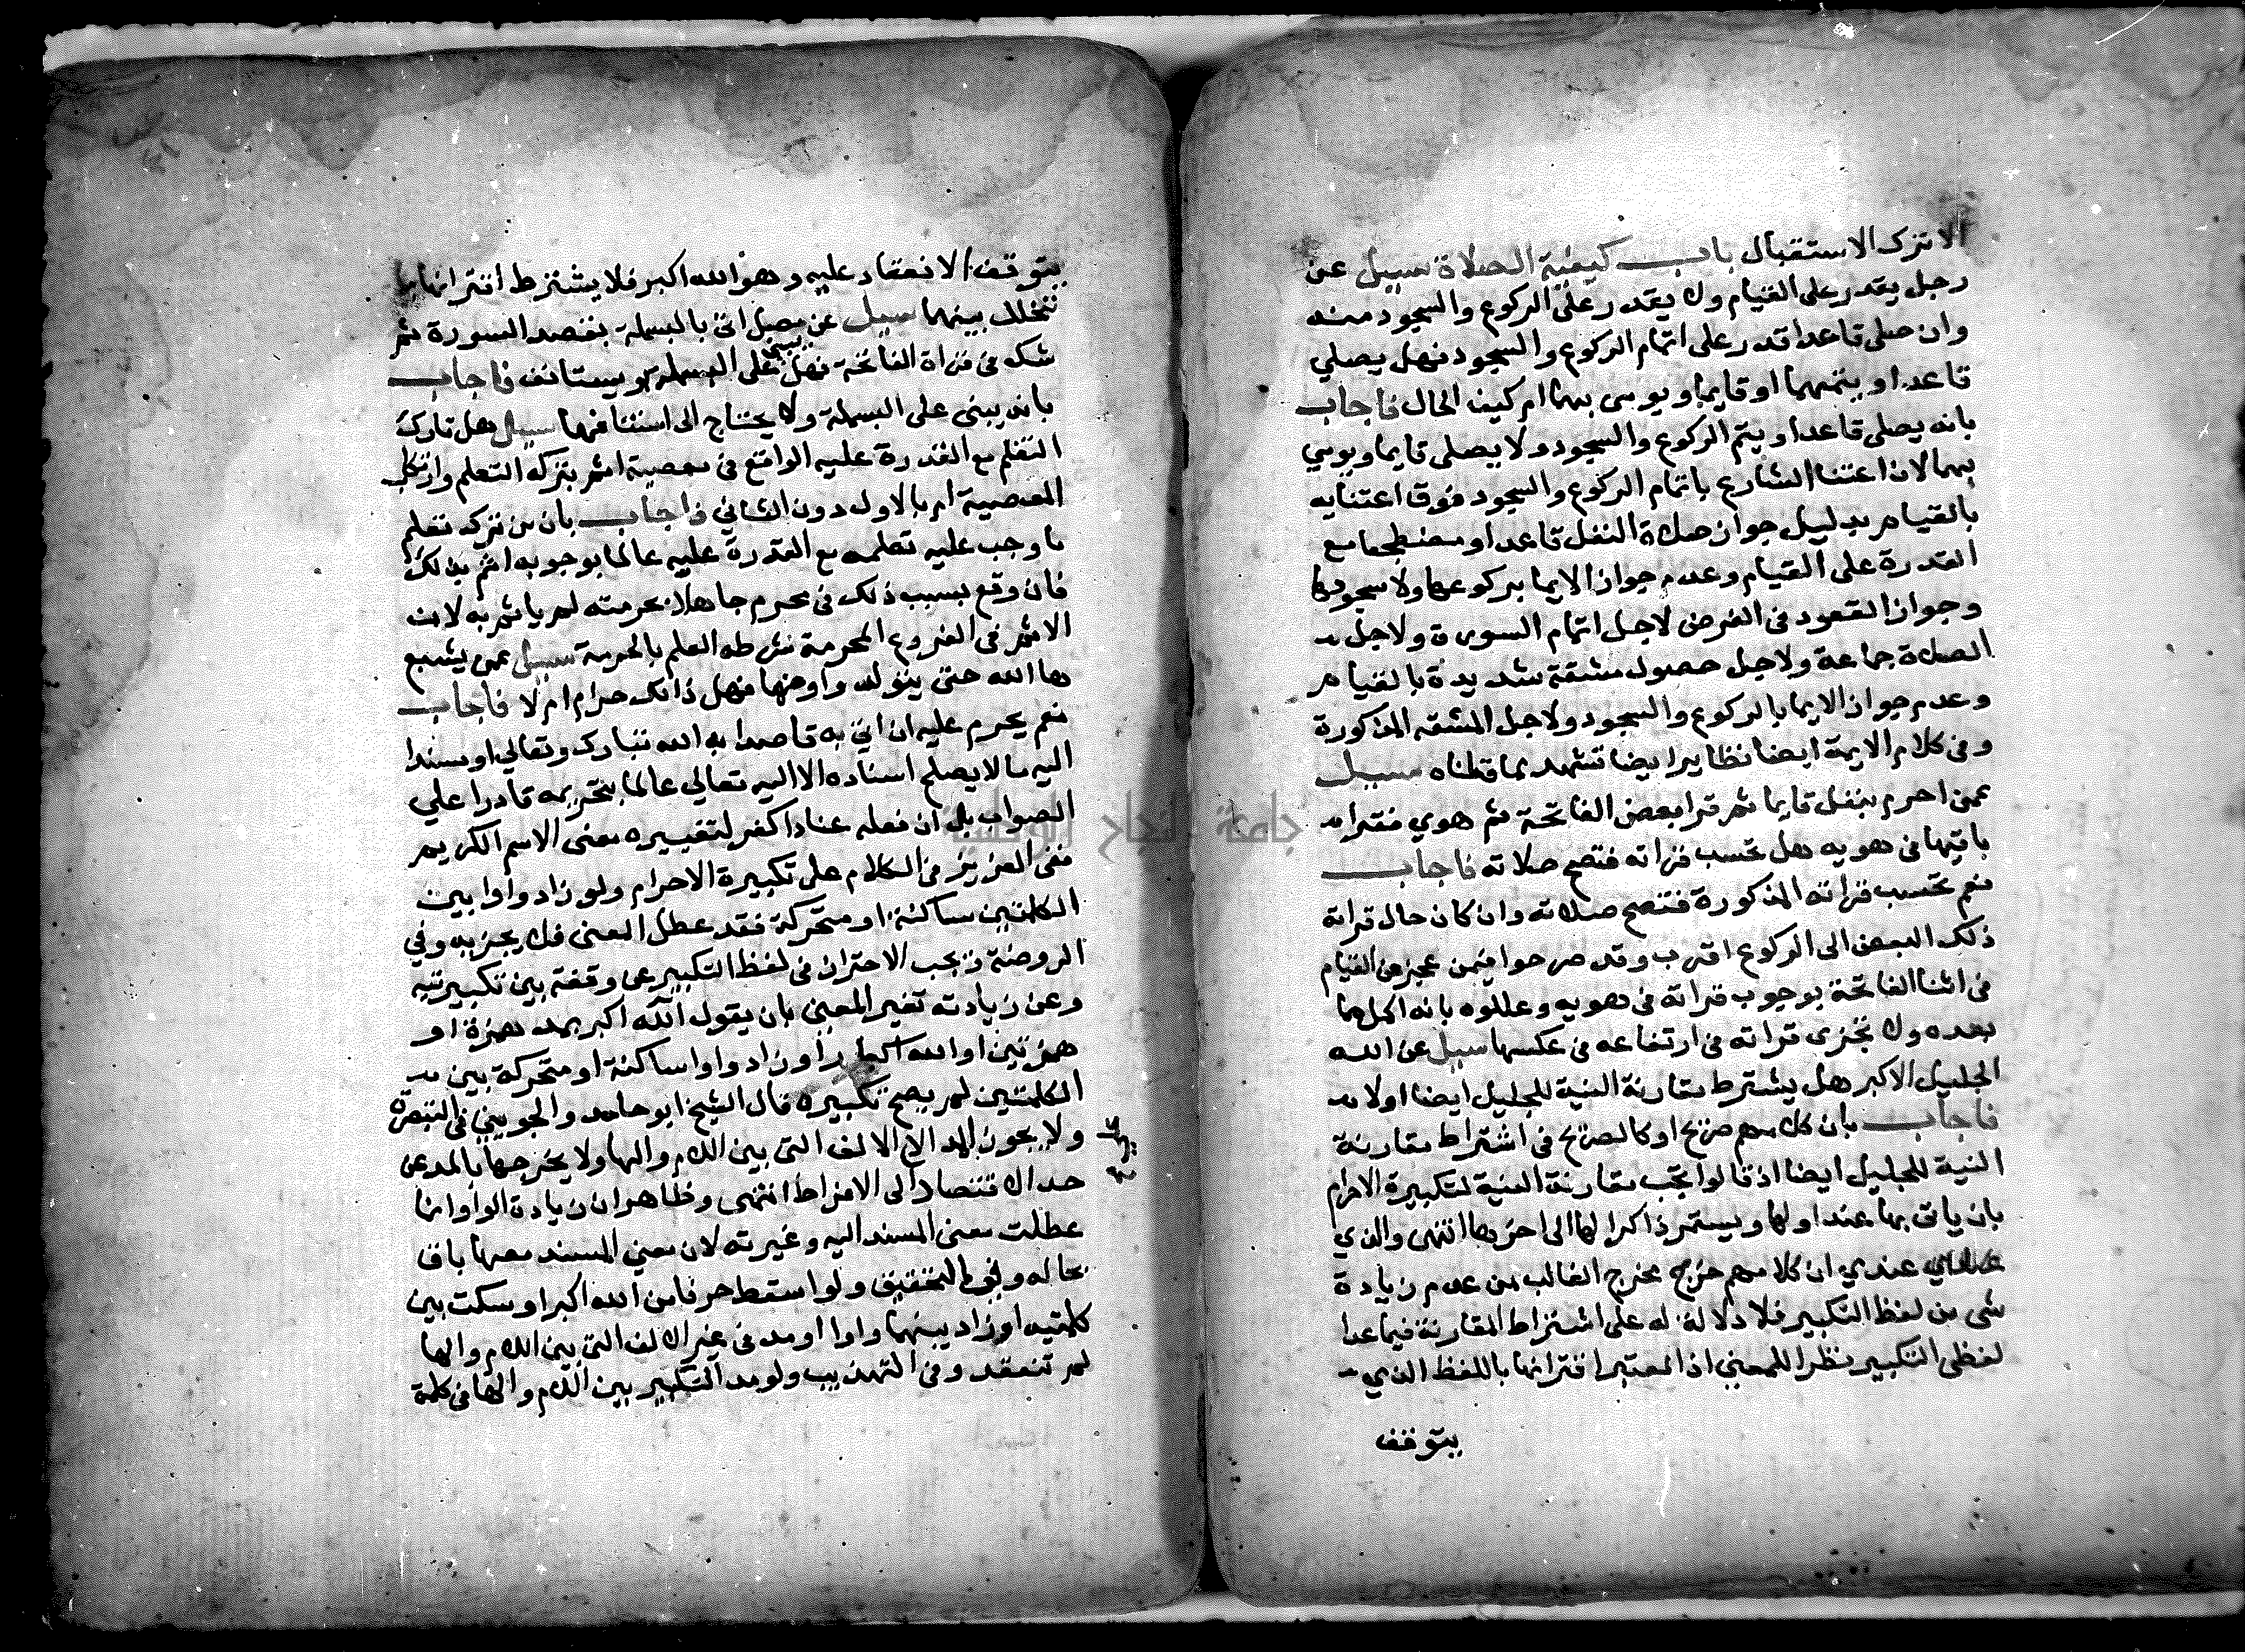 الا بترك الاستقبال باب كيفية الصلاة سييل عن
رجل يقدر على القيام ولا يقدر على الركوع والسجود منه
وان صلى قاعدا قدر على اتمام الركوع والسجود فهل يصلي
قاعدا ويتمهما او قايما ويومى بهما ام كيف الحال فاجاب
بانه يصلى قاعدا ويتم الركوع والسجود ولا يصلى قايما ويومي
بهما لان اعتنا الشارع باتمام الركوع والسجود فوق اعتنايه
بالقيام بدليل جواز صلاة النفل قاعدا ومضطجعا مع
القدرة على القيام وعدم جواز الايما بركوعها ولا سجودها
وجواز القعود في الفرض لاجل اتمام السورة ولاجل
الصلاة جماعة ولاجل حصول مشقة شديدة بالقيام
وعدم جواز الايما بالركوع والسجود ولاجل المشقه المذكورة
وفى كلام الايمة ايضا نظاير ايضا تشهد بما قلناه سييل
عمن احرم بنفل قايما ثم قرا بعض الفاتحة ثم هوي فقرا
باقيها فى هويه هل تحسب قراته فتصح صلاته فاجاب
نعم تحسب قراته المذكورة فتصح صلاته وان كان حال قراته
ذلك البعض الى الركوع اقرب وقد صرحوا فيمن عجز عن القيام
فى اثنا الفاتحة بوجوب قراته فى هويه وعللوه بانه اكمل مما
بعده ولا تجزى قراته فى ارتفاعه فى عكسها سييل عن الله
الجليل الاكبر هل يشترط مقارنة النية للجليل ايضا اولا
فاجاب بان كلامهم صريح او كالصريح فى اشتراط مقارنة
النية للجليل ايضا اذ قالوا تجب مقارنة النية لتكبيرة الاحرام
بان ياتى بها عند اولها ويستمر ذاكرا لها الى اخرها انتهى والذي
عندي ان كلامهم خرج مخرج الغالب من عدم زيادة
شى من لفظ التكبير فلا دلالة له على اشتراط المقارنة فيما عدا
لفظى التكبير نظرا للمعنى اذ المعتبر اقترانها باللفظ الذي
يتوقف
يتوقف الانعقاد عليه وهو الله اكبر فلا يشترط اقترانها بما
تخلل بينهما سييل عن مصل اتى بالبسملة بقصد السورة ثم
شك فى قراة الفاتحة فهل يبنى على البسملة او يستانف فاجاب
بانه يبنى على البسملة ولا يحتاج الى استئنافها سييل هل تارك
التعلم مع القدرة عليه الواقع فى معصية اثم بتركه التعلم وارتكاب
المعصية ام بالاول دون الثاني فاجاب بان من ترك تعلم
ما وجب عليه تعلمه مع القدرة عليه عالما بوجوبه اثم بذلك
فان وقع بسبب ذلك فى محرم جاهلا بحرمته لم ياثم به لان
الاثم فى الفروع المحرمة شرطه العلم بالحرمة سييل عمن يشبع
ها الله حتى يتولد واو منها فهل ذلك حرام ام لا فاجاب
نعم يحرم عليه ان اتى به قاصدا به الله تبارك وتعالى او مسندا
اليه ما لا يصلح اسناده الا اليه تعالى عالما بتحريمه قادرا علي
الصواب بل ان فعله عنادا كفر لتغييره معنى الاسم الكريم
ففى العزيز فى الكلام على تكبيرة الاحرام ولو زاد واوا بين
الكلمتين ساكنة او متحركة فقد عطل المعنى فلا يجزيه وفي
الروضة ويجب الاحتراز فى لفظ التكبير عن وقفة بين تكبيرتيه
وعن زيادته تغير المعنى بان يقول آلله اكبر بمد همزة او
همزتين او الله اكبار او زاد واوا ساكنة او متحركة بين
الكلمتين لم يصح تكبيره قال الشيخ ابو حامد والجويني فى التبصرة
ولا يجوز المد الا الالف التى بين اللام والها ولا يخرجها بالمد عن
حد الاقتصاد الى الافراط انتهى وظاهر ان زيادة الواو انما
عطلت معنى المسند اليه وغيرته لان معني المسند معها باق
بحاله وفي التحقيق ولو اسقط حرفا من الله اكبر او سكت بين
كلمتيه او زاد بينهما واوا او مد فى غير الالف التى بين اللام والها
لم تنعقد وفى التهذيب ولو مد التكبير بين اللام والها فى كلمة
جامعة النجاح الوطنية